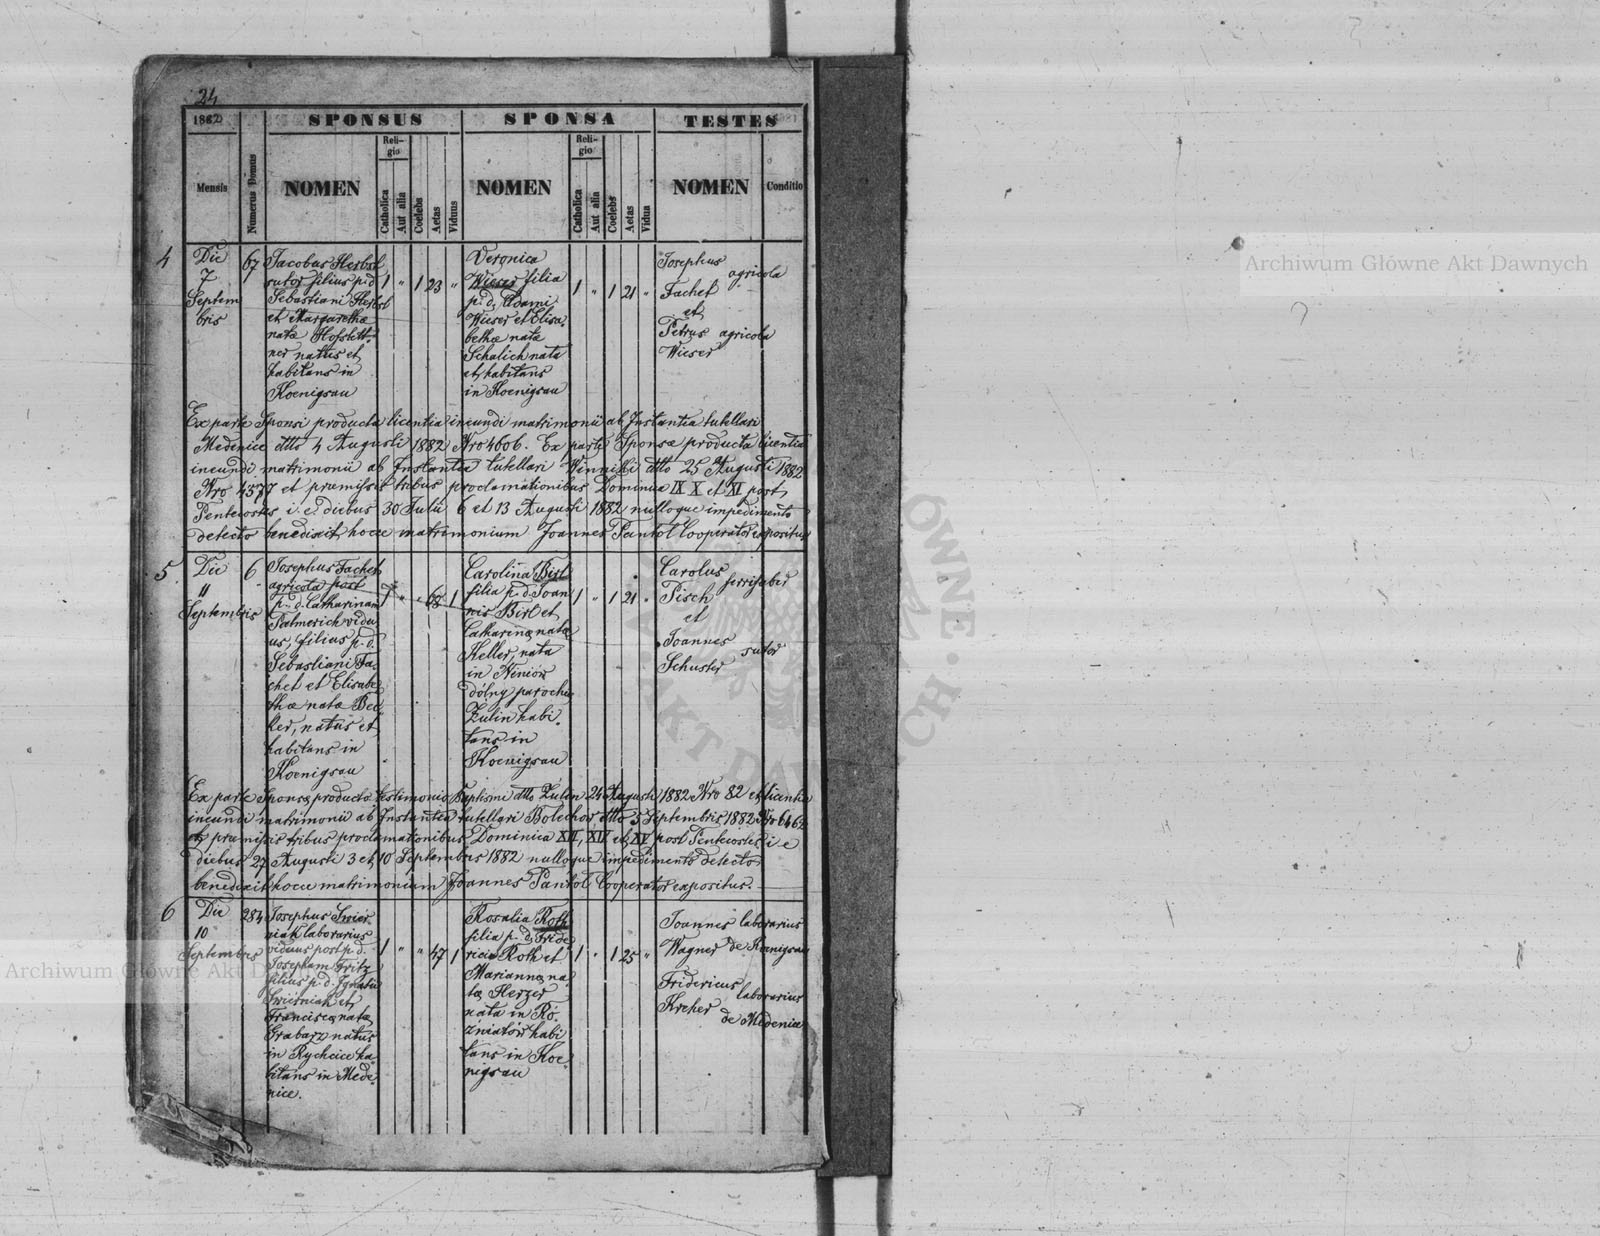 24
1882
SPONSUS
SPONSA
TESTES
Mensis
Numerus Domus
NOMEN
Religio
Catholica
Aut alia
Coelebs
Aetas
Viduus
NOMEN
Religio
Catholica
Aut alia
Coelebs
Aetas
Vidua
NOMEN
Conditio
4
Die
7
Septem
bris
67
Jacobus Herbst
sutor filius p. d.
Sebastiani Herbst
et Margarethæ
natæ Hofstett-
ner natus et
habitans in
Koenigsau
1 " 1 23 "
Veronica
Wieser filia
p. d. Adami
Wieser et Elisa-
bethæ natæ
Schalich nata
et habitans
in Koenigsau
1 " 1 21 "
Josephus
agricola
Fachet
et
Petrus agricola
Wieser
Ex parte Sponsi producta licentia ineundi matrimonii ab Instantia tutellari
Medenice dtto 4 Augusti 1882 Nro 4606. Ex parte Sponsæ producta licentia
ineundi matrimonii ab Instantia tutellari Winniki dtto 25 Augusti 1882
Nro 4577 et præmissis tribus proclamationibus Dominica IX X et XI post
Pentecostes i. e. diebus 30 Julii 6 et 13 Augusti 1882 nulloque impedimento
detecto benedixit hocce matrimonium Joannes Pantoł Cooperator expositus
5
Die
11
Septembris
6
Josephus Fachet
agricola post
p. d. Catharinam
Palmerich vidu
us, filius p. d.
Sebastiani Fa-
chet et Elisabe
thæ natæ Bec
ker, natus et
habitans in
Koenigsau
1 " " 68 1
Carolina Birt
filia p. d. Joan
nis Birt et
Catharinæ natæ
Keller, nata
in Weniów
dólny parochia
Zulin habi-
tans in
Koenigsau
1 " 1 21 "
Carolus
ferrifaber
Pisch
et
Joannes
sutor
Schuster
Ex parte Sponsæ producto testimonio Baptismi dtto Zulin 24 Augusti 1882 Nro 82 et licentia
ineundi matrimonii ab Instantia tutellari Bolechow dtto 5 Septembris 1882 Nro 6462
et præmissis tribus proclamationibus Dominica XIII, XIV et XV post Pentecostes i e
diebus 27 Augusti 3 et 10 Septembris 1882 nulloque impedimento detecto
benedixit hocce matrimonium Joannes Pantoł Cooperator expositus.
6
Die
10
Septembris
284
Josephus Swier
niak laborarius
viduus post p. d.
Josepham Fritz
filius p. d. Ignatii
Swierniak et
Franciscæ natæ
Grabarz natus
in Rychcice ha
bitans in Mede
nice.
1 " " 47 1
Rosalia Roth
filia p. d. Fride
rici Roth et
Mariannæ na-
tæ Herzer
nata in Ro-
zniatów habi
tans in Koe-
nigsau
1 " 1 25 "
Joannes laborarius
Wagner de Koenigsau
Fridericus
laborarius
Kreher
de Medenice
Archiwum Główne Akt Dawnych
Archiwum Główne Akt D